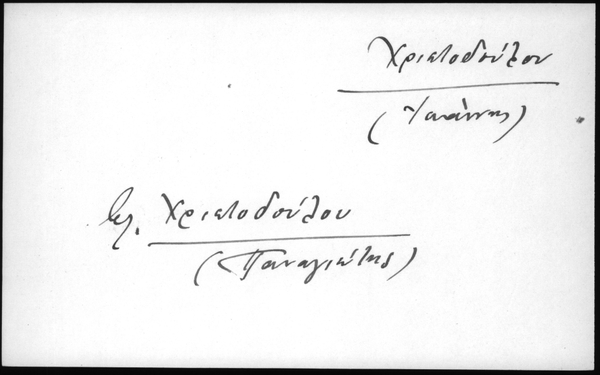 Χριστοδούλου
(Ἰωάννης)
βλ. Χριστοδούλου
(Παναγιώτης)